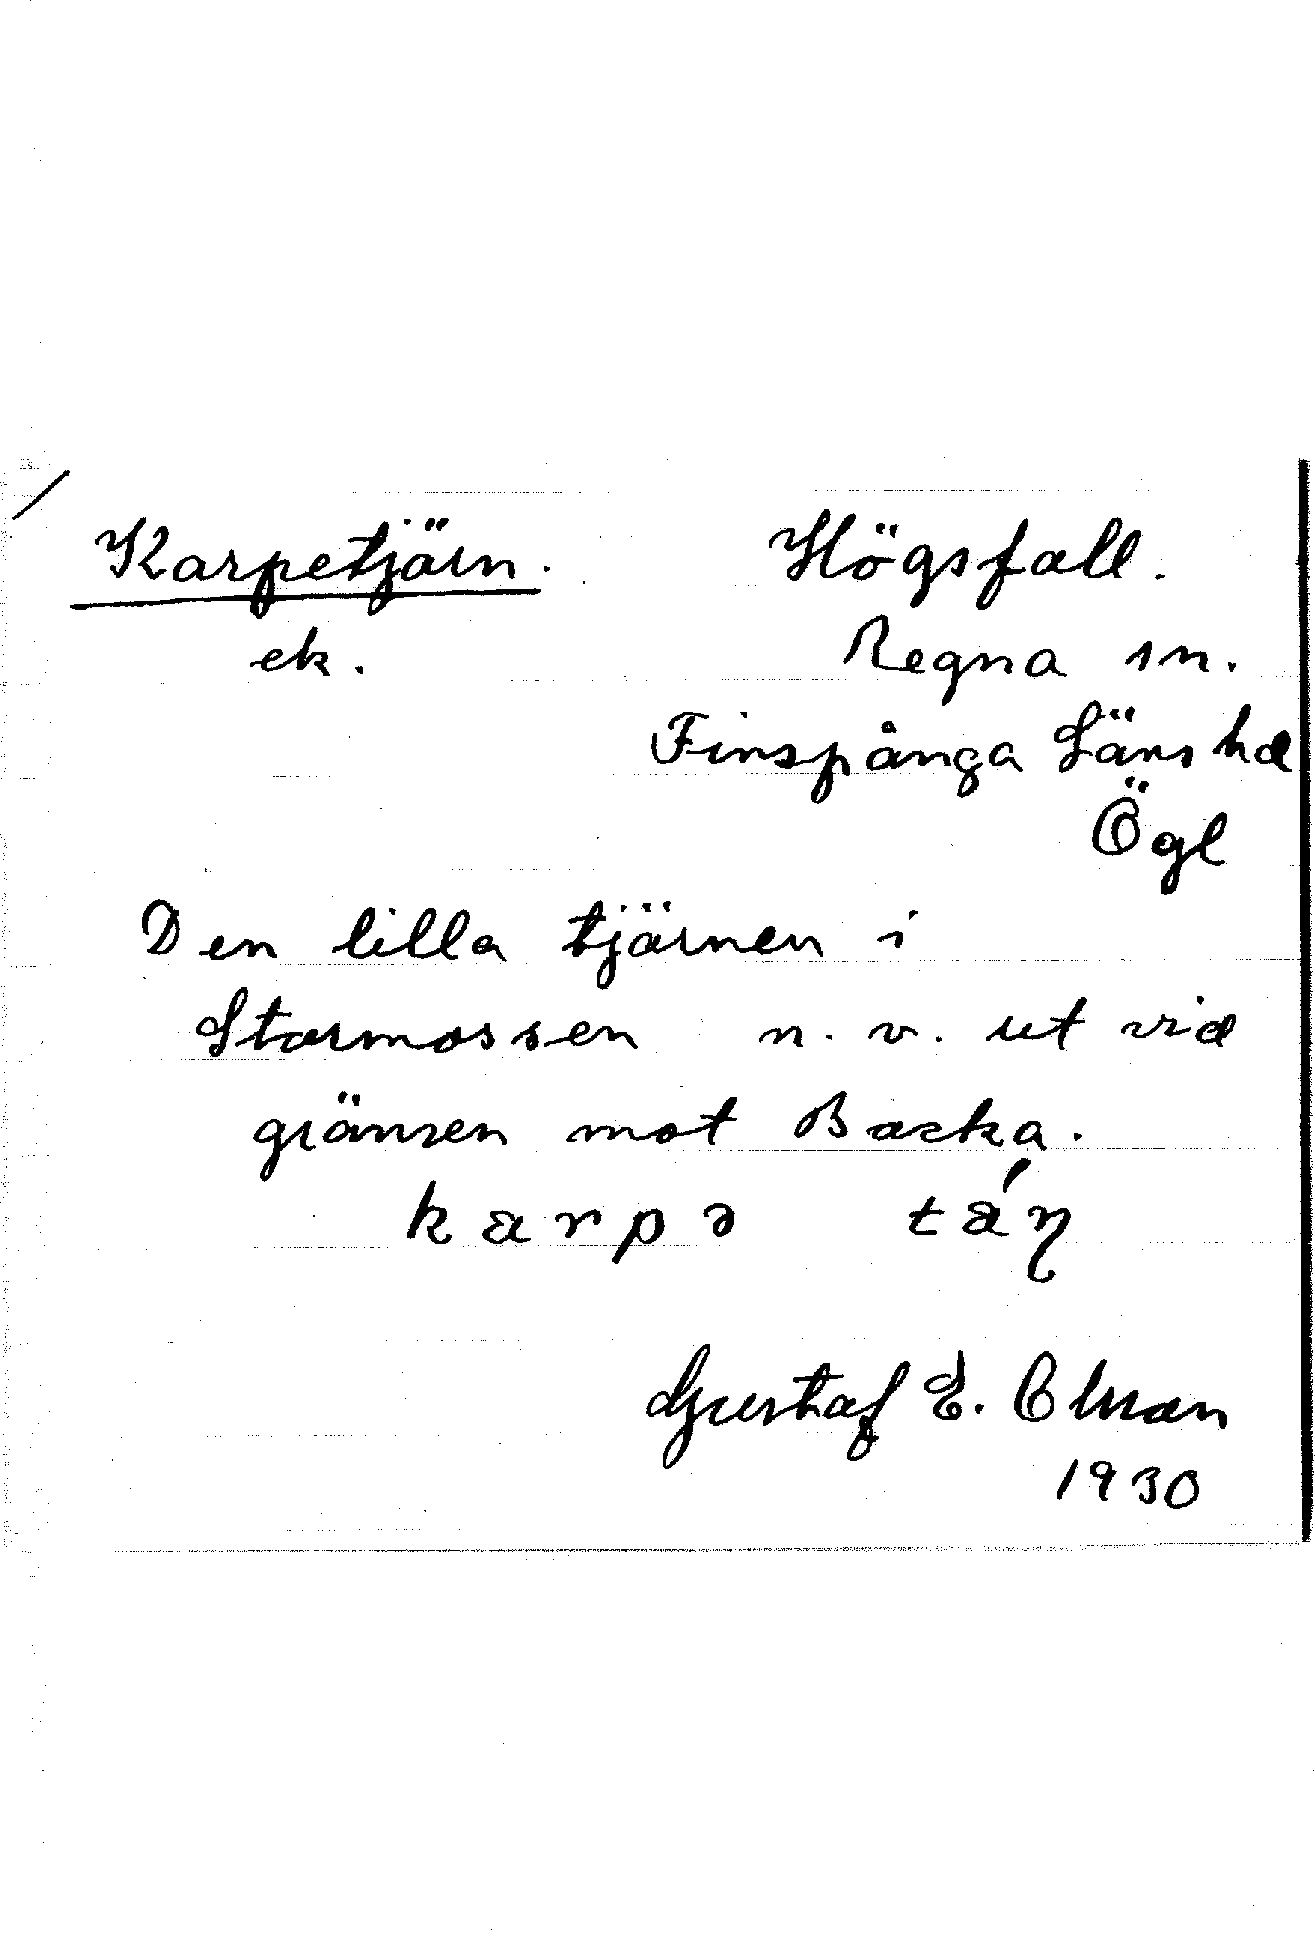 Karpetjärn. Högsfall.
ek. Regna sn.
Finspånga Läns hd
Ögl
Den lilla tjärnen i
Stormossen n. v. ut vid
gränsen mot Backa.
karpə
Gustaf E. Olman
1930